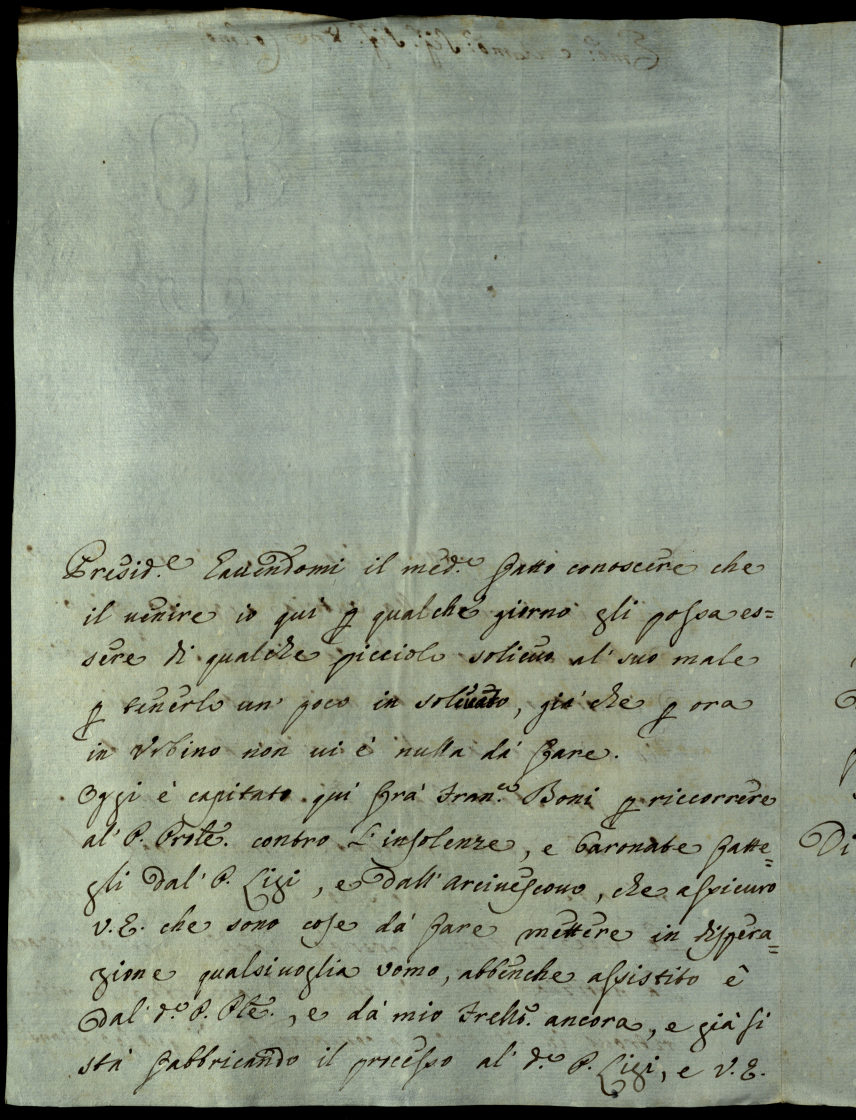 Presid.e Havendomi il med.o fatto conoscere che
il venire io qui ꝑ qualche giorno gli possa es=
sere di qualche picciolo solievo al' suo male
ꝑ tenerlo un' poco in sollevato, già che ꝑ ora
in Urbino non vi è nulla dà fare.
Oggi è capitato qui frà Fran.co Boni ꝑ riccorrere
al' P. Prõte. contro L'insolenze, e baronate fatte=
gli dal' P. Ligi, e dall' Arcivescovo, che assicuro
V. E. che sono cose dà fare mettere in dispera=
zione qualsivoglia uomo, abbenche assistito è
dal' d.o P. Pte., e dà mio Frello. ancora, e già si
stà fabbricando il processo al' d.o P. Ligi, e V. E.
Di